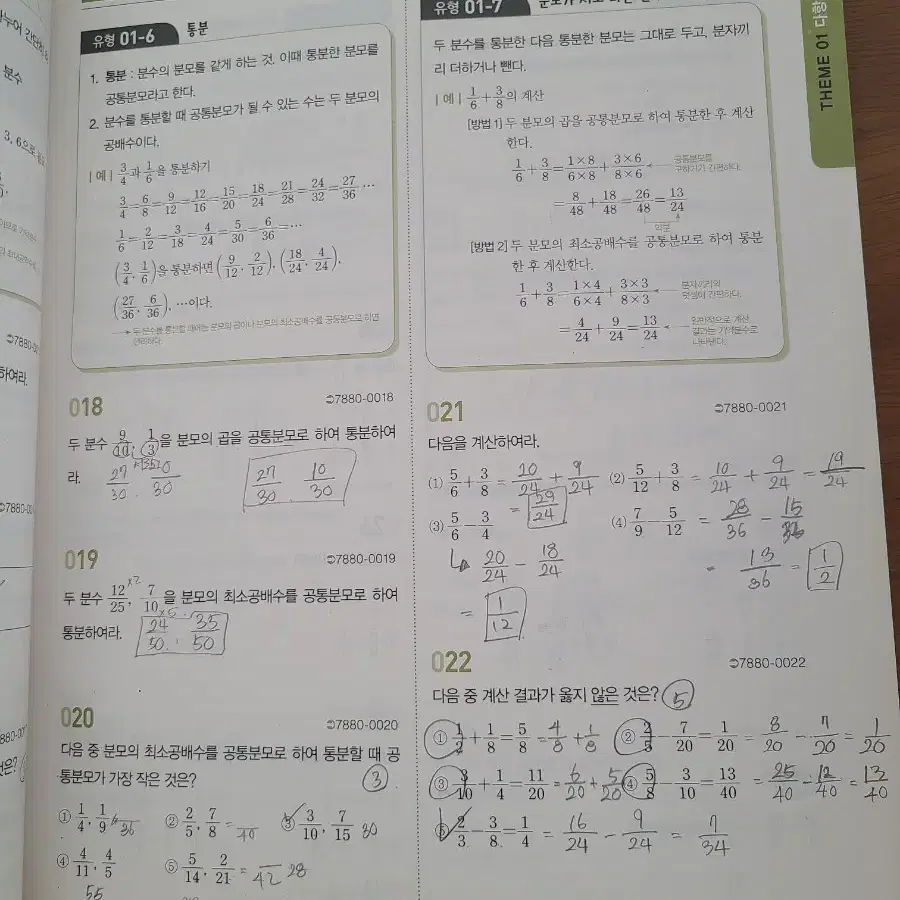 유형 01-6 통분
1. 통분 : 분수의 분모를 같게 하는 것. 이때 통분한 분모를
공통분모라고 한다.
2. 분수를 통분할 때 공통분모가 될 수 있는 수는 두 분모의
공배수이다.
|예| 3/4과 1/6을 통분하기
3/4=6/8=9/12=12/16=15/20=18/24=21/28=24/32=27/36 …
1/6=2/12=3/18=4/24=5/30=6/36=…
(3/4, 1/6)을 통분하면 (9/12, 2/12), (18/24, 4/24),
(27/36, 6/36), …이다.
두 분수를 통분할 때에는 분모의 곱이나 분모의 최소공배수를 공통분모로 하면
편리하다.
018 7880-0018
두 분수 9/10, 1/3을 분모의 곱을 공통분모로 하여 통분하여
라.
27/30 . 10/30
27/30 . 10/30
019 7880-0019
두 분수 12/25, 7/10을 분모의 최소공배수를 공통분모로 하여
×2 ×5
통분하여라. 24/50 . 35/50
020 7880-0020
다음 중 분모의 최소공배수를 공통분모로 하여 통분할 때 공
통분모가 가장 작은 것은? ③
① 1/4, 1/9 36 ② 2/5, 7/8 = 40 ③ 3/10, 7/15 30
④ 4/11, 4/5 ⑤ 5/14, 2/21 = 42 28
55
유형 01-7
두 분수를 통분한 다음 통분한 분모는 그대로 두고, 분자끼
리 더하거나 뺀다.
|예| 1/6+3/8의 계산
[방법 1] 두 분모의 곱을 공통분모로 하여 통분한 후 계산
한다.
1/6+3/8=1×8/6×8+3×6/8×6 공통분모를
구하기가 간편하다.
=8/48+18/48=26/48=13/24
약분
[방법 2] 두 분모의 최소공배수를 공통분모로 하여 통분
한 후 계산한다.
1/6+3/8=1×4/6×4+3×3/8×3 분자끼리의
덧셈이 간편하다.
=4/24+9/24=13/24 일반적으로 계산
결과는 기약분수로
나타낸다.
021 7880-0021
다음을 계산하여라.
(1) 5/6+3/8 = 20/24 + 9/24 (2) 5/12+3/8 = 10/24 + 9/24 = 19/24
= 29/24
(3) 5/6-3/4 (4) 7/9-5/12 = 28/36 - 15/36
20/24 - 18/24 = 13/36 = 1/2
= 1/12
022 7880-0022
다음 중 계산 결과가 옳지 않은 것은? ⑤
① 1/2+1/8=5/8 = 4/8 + 1/8 ② 2/5-7/20=1/20 = 8/20 - 7/20 = 1/20
③ 3/10+1/4=11/20 = 6/20 + 5/20 ④ 5/8-3/10=13/40 = 25/40 - 12/40 = 13/40
⑤ 2/3-3/8=1/4 = 16/24 - 9/24 = 7/34
THEME 01 다항